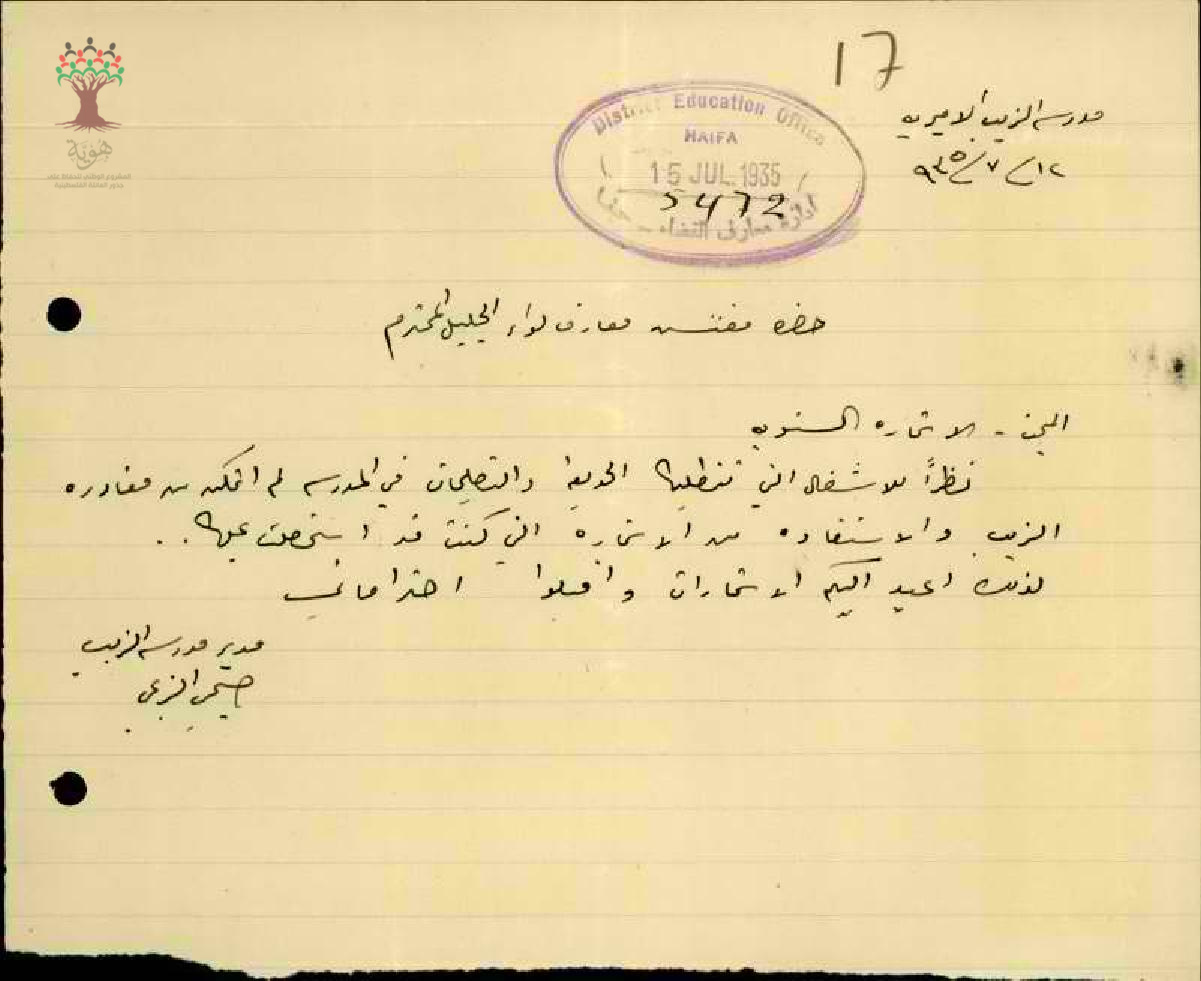 17
مدرسة الزيب الاميرية
١٢/٧/٩٣٥
District Education Office
HAIFA
15 JUL. 1935
5472
ادارة معارف القضاء - حيفا
هوية
المشروع الوطني للحفاظ على
جذور العائلة الفلسطينية
حضرة مفتش معارف لواء الجليل المحترم
المبحث - الاستمارة السنوية
نظراً للاشغال التي تتطلبها الحديقة والتصليحات في المدرسة لم اتمكن من مغادرة
الزيب والاستفادة من الاستمارة التي كنت قد استحصلت عليها . .
لذلك اعيد اليكم الاستمارات واقبلوا احتراماتي
مدير مدرسة الزيب